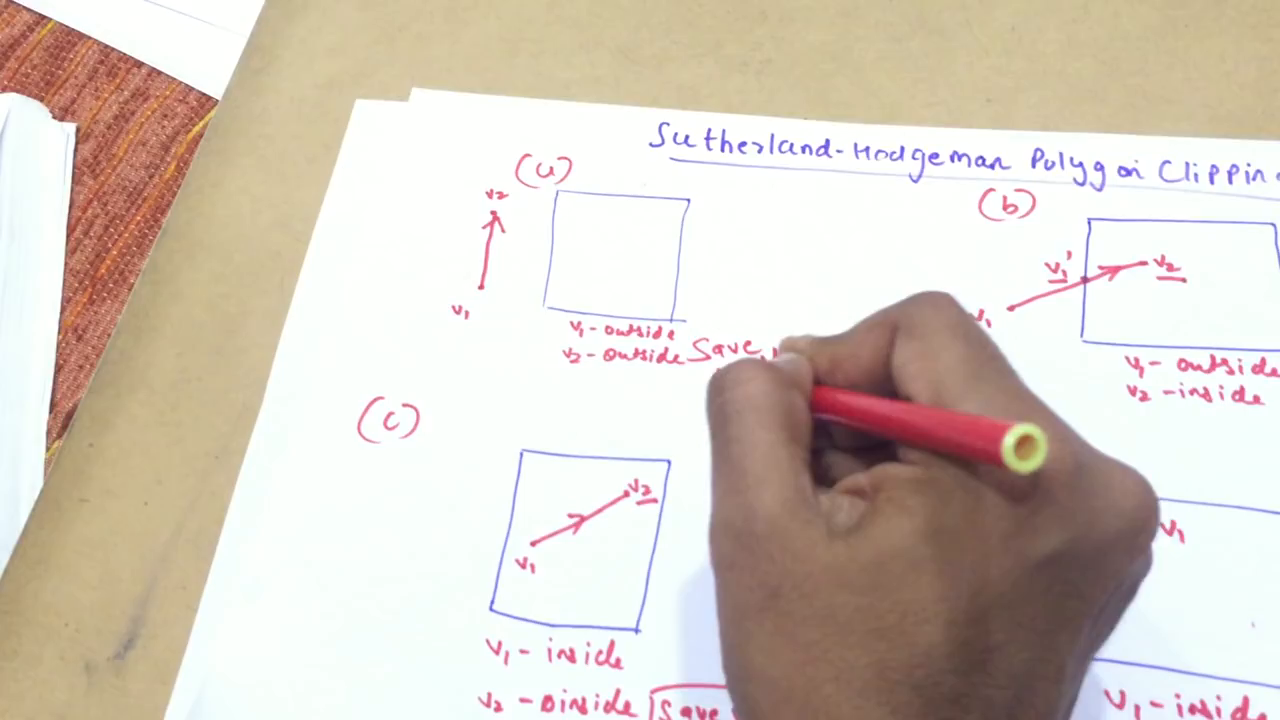 Sutherland-Hodgeman Polygon Clipping
(a)
v2
v1
v1- outside
v2- outside Save
(b)
v1'
v2
v1
v1- outside
v2 -inside
(c)
v2
v1
v1 - inside
v2 - oinside Save
v1
v1 -inside